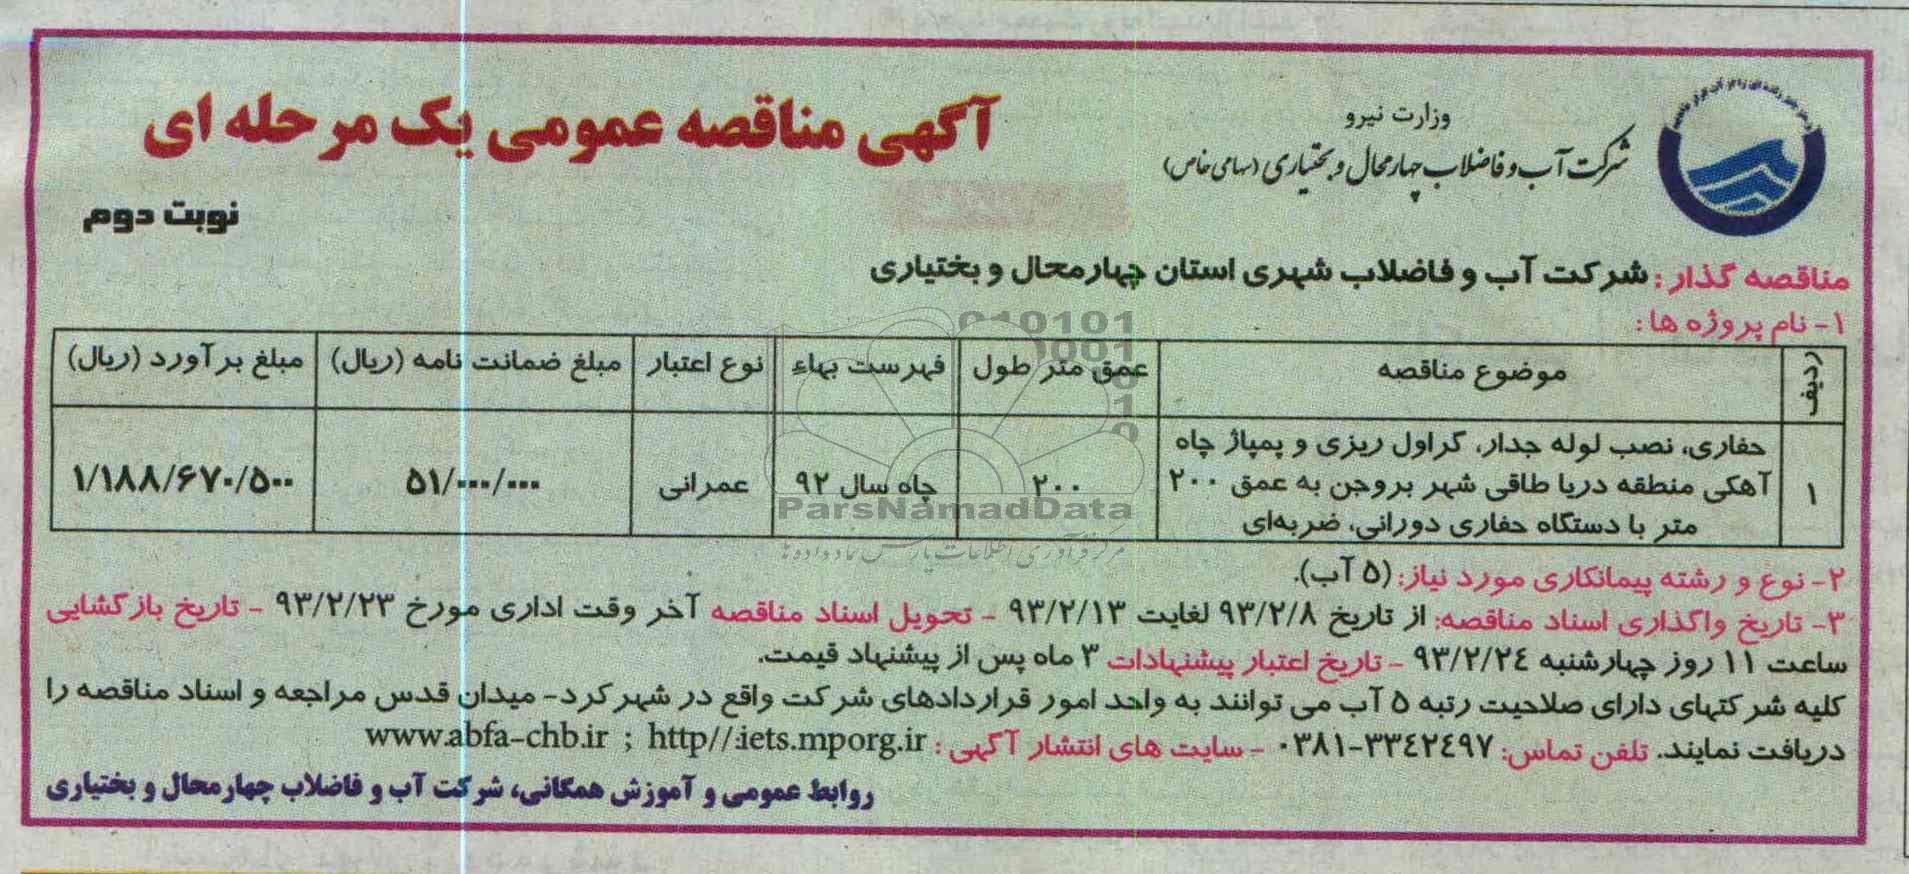 وزارت نیرو
شرکت آب و فاضلاب چهارمحال و بختیاری (سهامی خاص)
آگهی مناقصه عمومی یک مرحله ای
نوبت دوم
مناقصه گذار : شرکت آب و فاضلاب شهری استان چهارمحال و بختیاری
۱- نام پروژه ها :
ردیف | موضوع مناقصه | عمق متر طول | فهرست بهاء | نوع اعتبار | مبلغ ضمانت نامه (ریال) | مبلغ برآورد (ریال)
۱ | حفاری، نصب لوله جدار، گراول ریزی و پمپاژ چاه
آهکی منطقه دریا طاقی شهر بروجن به عمق ۲۰۰
متر با دستگاه حفاری دورانی، ضربه‌ای | ۲۰۰ | چاه سال ۹۲ | عمرانی | ۵۱/۰۰۰/۰۰۰ | ۱/۱۸۸/۶۷۰/۵۰۰
۲- نوع و رشته پیمانکاری مورد نیاز: (۵ آب).
۳- تاریخ واگذاری اسناد مناقصه: از تاریخ ۹۳/۲/۸ لغایت ۹۳/۲/۱۳ - تحویل اسناد مناقصه آخر وقت اداری مورخ ۹۳/۲/۲۳ - تاریخ بازگشایی
ساعت ۱۱ روز چهارشنبه ۹۳/۲/۲٤ - تاریخ اعتبار پیشنهادات ۳ ماه پس از پیشنهاد قیمت.
کلیه شرکتهای دارای صلاحیت رتبه ۵ آب می توانند به واحد امور قراردادهای شرکت واقع در شهرکرد- میدان قدس مراجعه و اسناد مناقصه را
دریافت نمایند. تلفن تماس: ۰۳۸۱-۳۳٤۲٤۹۷ - سایت های انتشار آگهی : http//:iets.mporg.ir ; www.abfa-chb.ir
روابط عمومی و آموزش همگانی، شرکت آب و فاضلاب چهارمحال و بختیاری
ParsNamadData
مرکز فرآوری اطلاعات پارس نماد داده ها